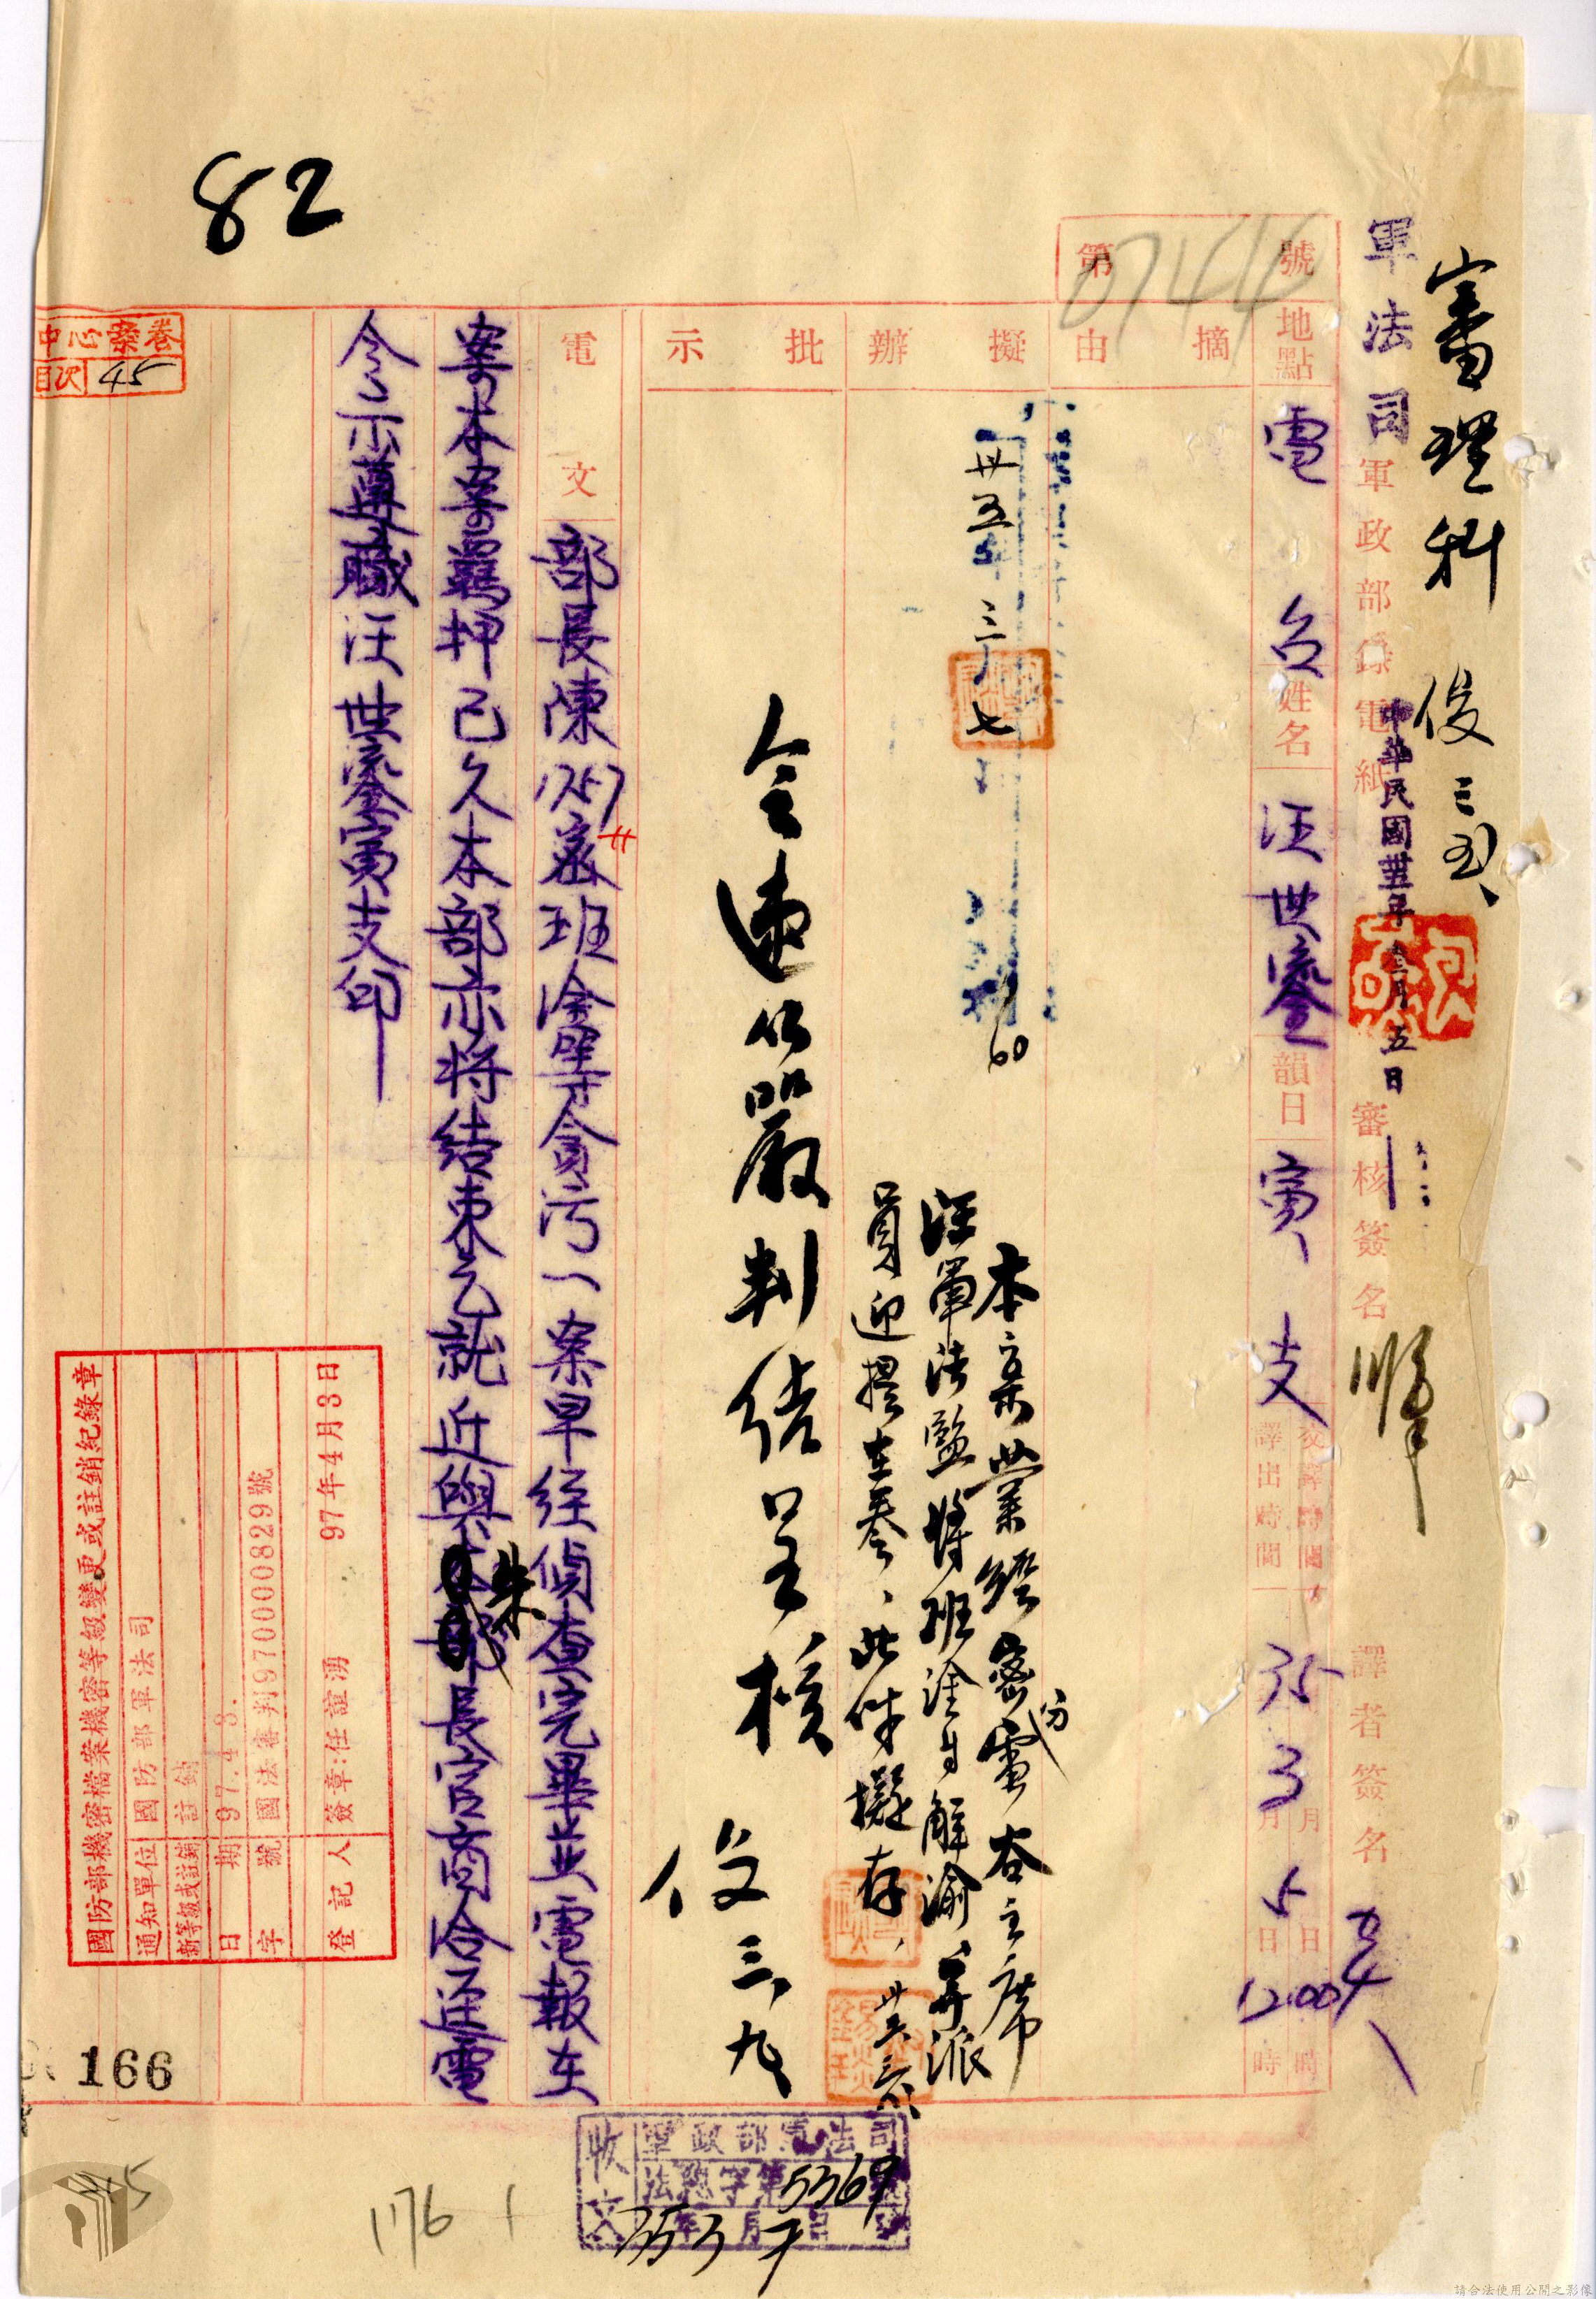 82
審理科 俊 三、五、
軍法司
軍政部錄電紙
中華民國卅五年叁月五日
審核簽名
譯者簽名
第07446號
地點 電 台 姓名 汪世鎏 韻日 寅、支
交譯時間 月 日 時
譯出時間 35 3月5日12.00時
摘由
擬辦
卅五 三 七
本案業經密電分呑主席
汪軍法監將班淦等解渝、並派
員迎提在卷、此件擬存、
批示
令速從嚴判結呈核
俊 三、九
電文
部長陳1757密班淦等貪污一案早經偵查完畢並電報在
案本案羈押已久本部亦將結束乞就近與朱長官商洽逕電
令示遵職汪世鎏寅支印
中心案卷
目次 45
國防部機密檔案機密等級變更或註銷紀錄章
通知單位 國防部軍法司
新等級或註銷 註銷
日期 97.4.3.
字號 國法審判970000829號
登記人 簽章:任誼湧 97年4月3日
166
收文 軍政部軍法司
法總字第5369號
35年3月7日
176 1
45
請合法使用公開之影像